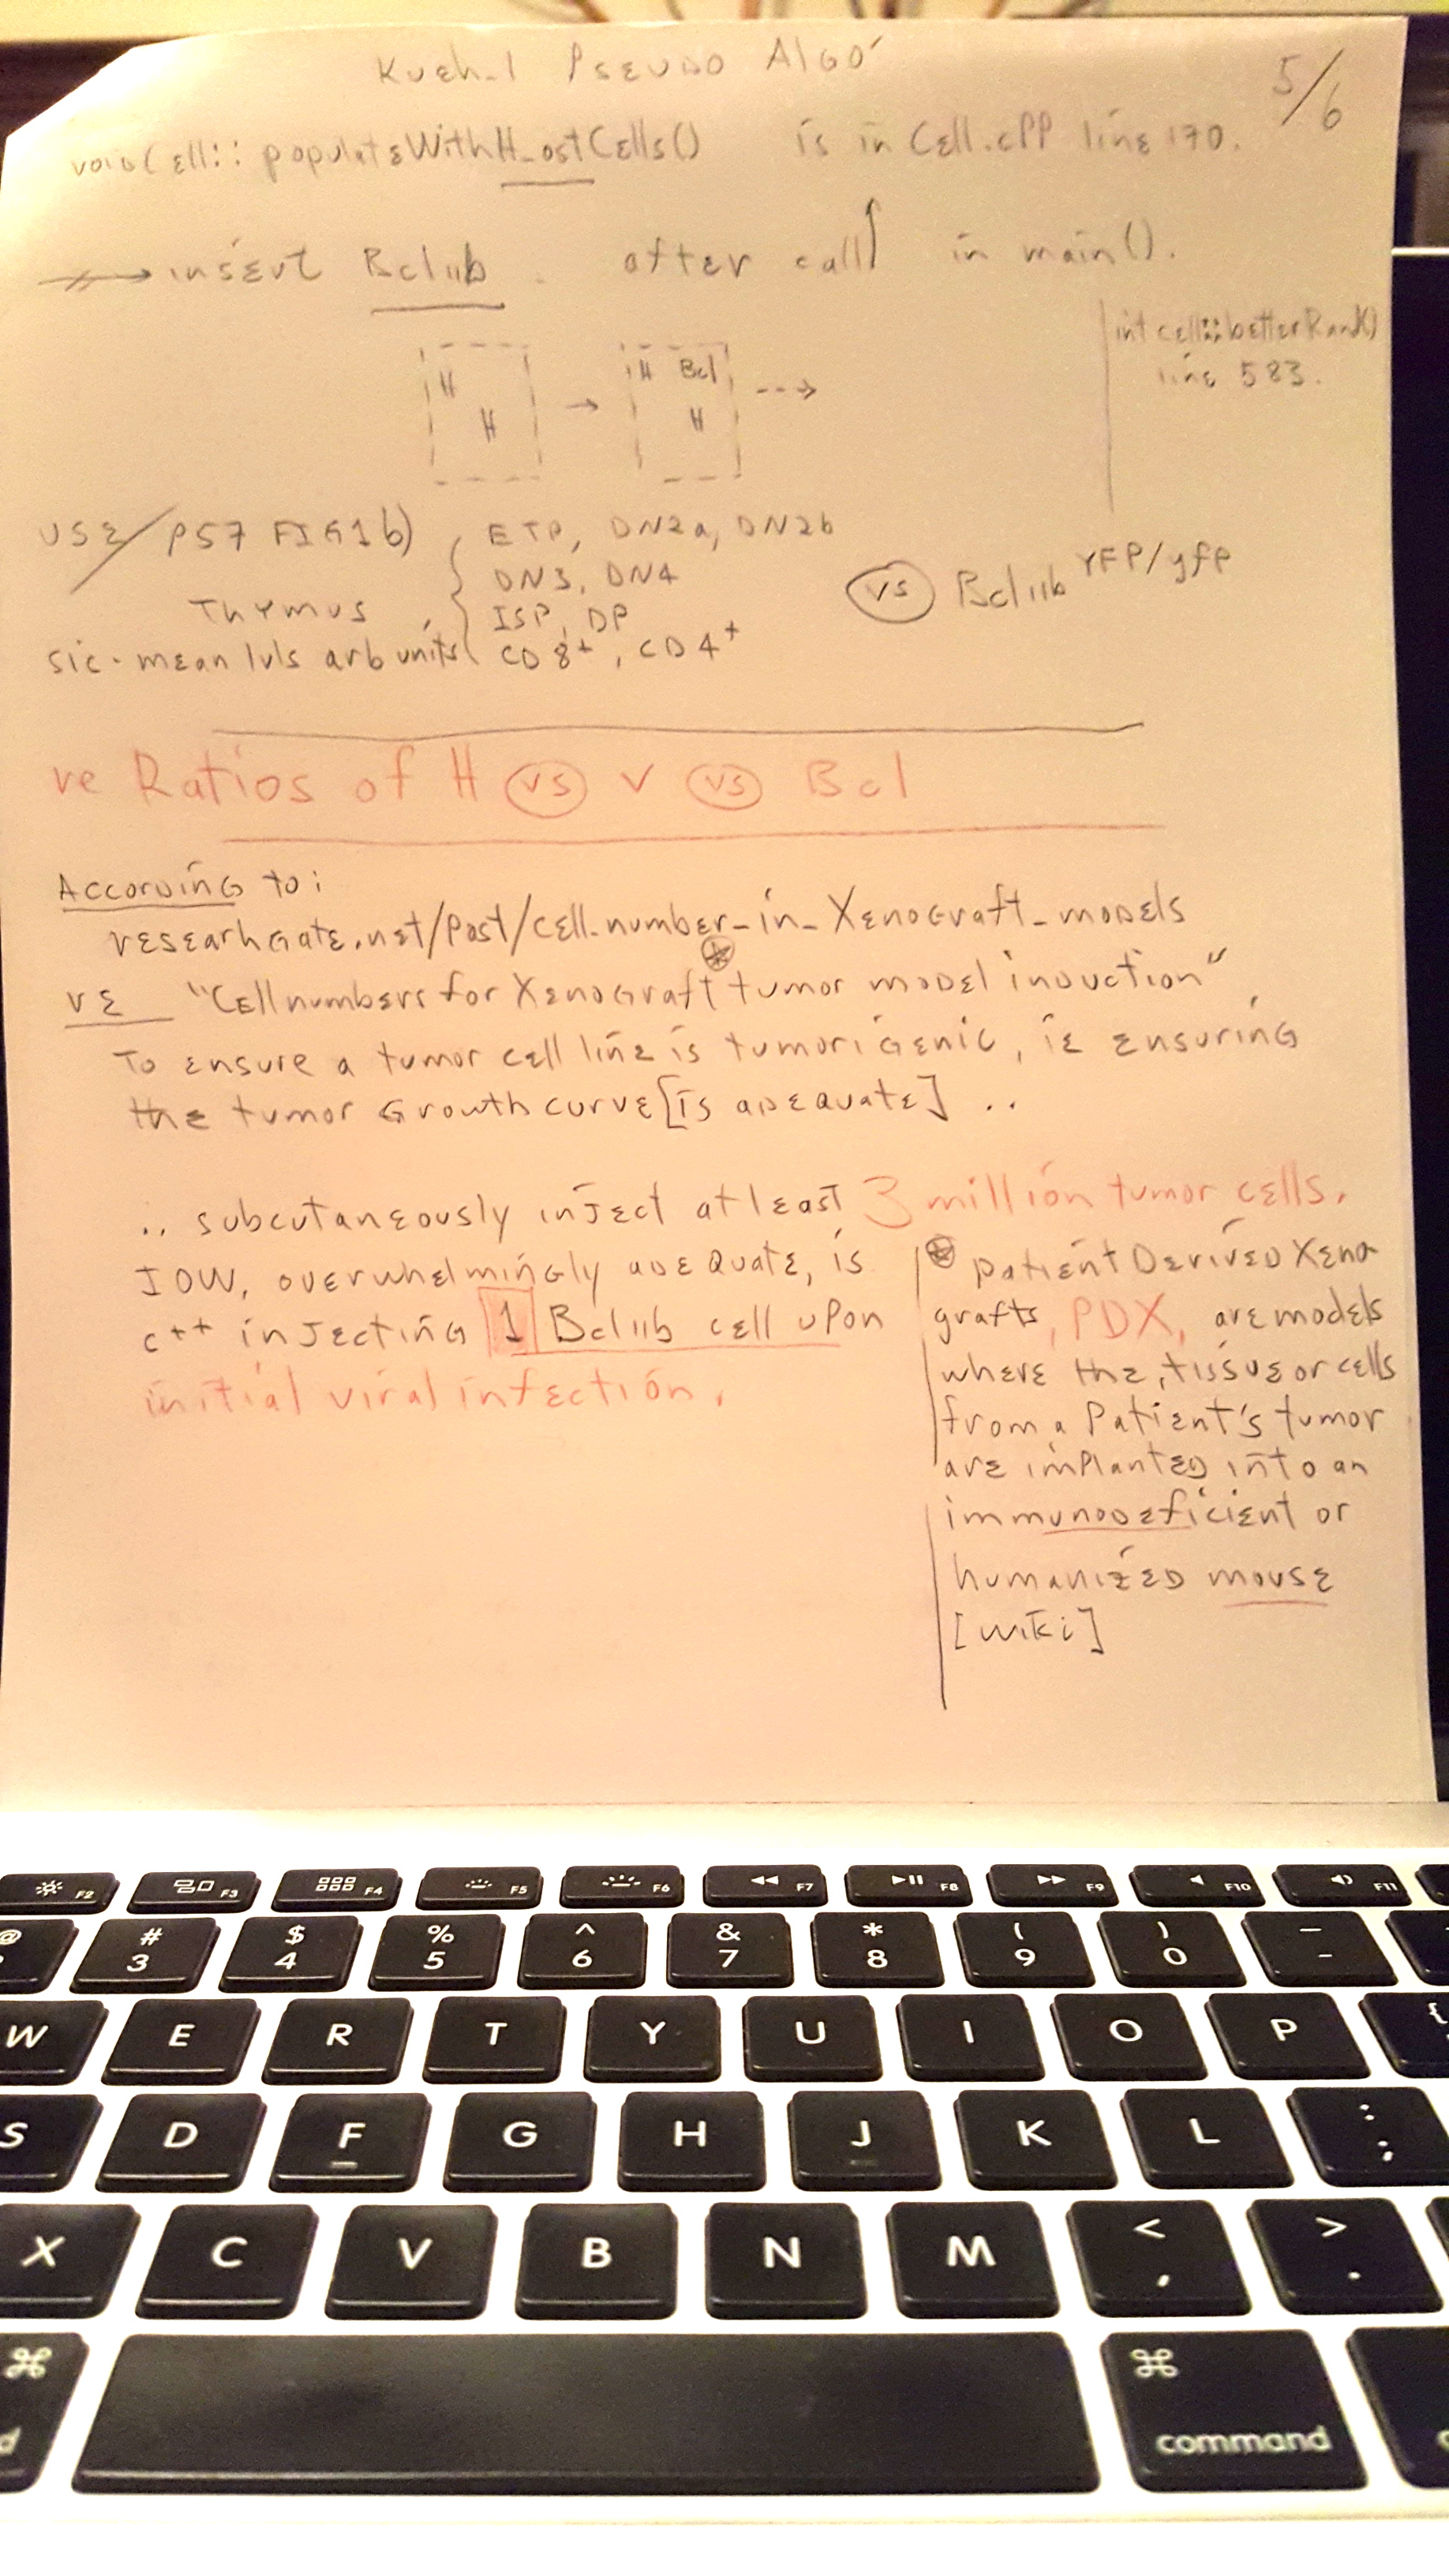 Kueh-1 Pseudo Algo
5/6
void Cell::populateWithH_ostCells() is in Cell.cpp line 170.
insert Bcl11b after call in main().
int cell::betterRand()
line 583.
H
H
H Bcl
H
USE/ P57 FIG1b)
Thymus
sic. mean lvls arb units
ETP, DN2a, DN2b
DN3, DN4
ISP, DP
CD8+, CD4+
vs Bcl11b YFP/yfp
re Ratios of H vs V vs Bcl
According to:
researhgate.net/post/cell_number_in_Xenograft_models
re "Cell numbers for Xenograft tumor model induction",
To ensure a tumor cell line is tumorigenic, ie ensuring
the tumor Growth curve [is adequate] ..
.. subcutaneously inject at least 3 million tumor cells.
IOW, overwhelmingly adequate, is
c++ injecting 1 Bcl11b cell upon
initial viral infection.
patient Derived Xeno
grafts, PDX, are models
where the tissue or cells
from a Patient's tumor
are implanted into an
immunodeficient or
humanized mouse
[wiki]
F2 F3 F4 F5 F6 F7 F8 F9 F10 F11
@ # 3 $ 4 % 5 ^ 6 & 7 * 8 ( 9 ) 0 — -
W E R T Y U I O P {
S D F G H J K L : ;
X C V B N M < , > .
⌘ ⌘
d command